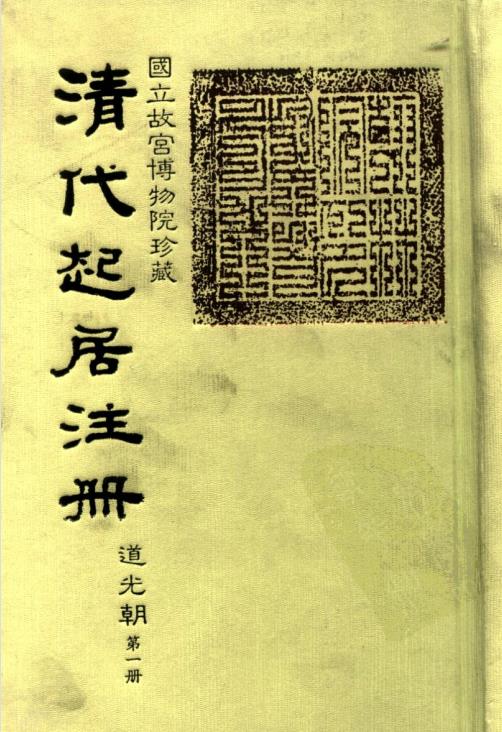 國立故宮博物院珍藏
清代起居注册
道光朝
第一册